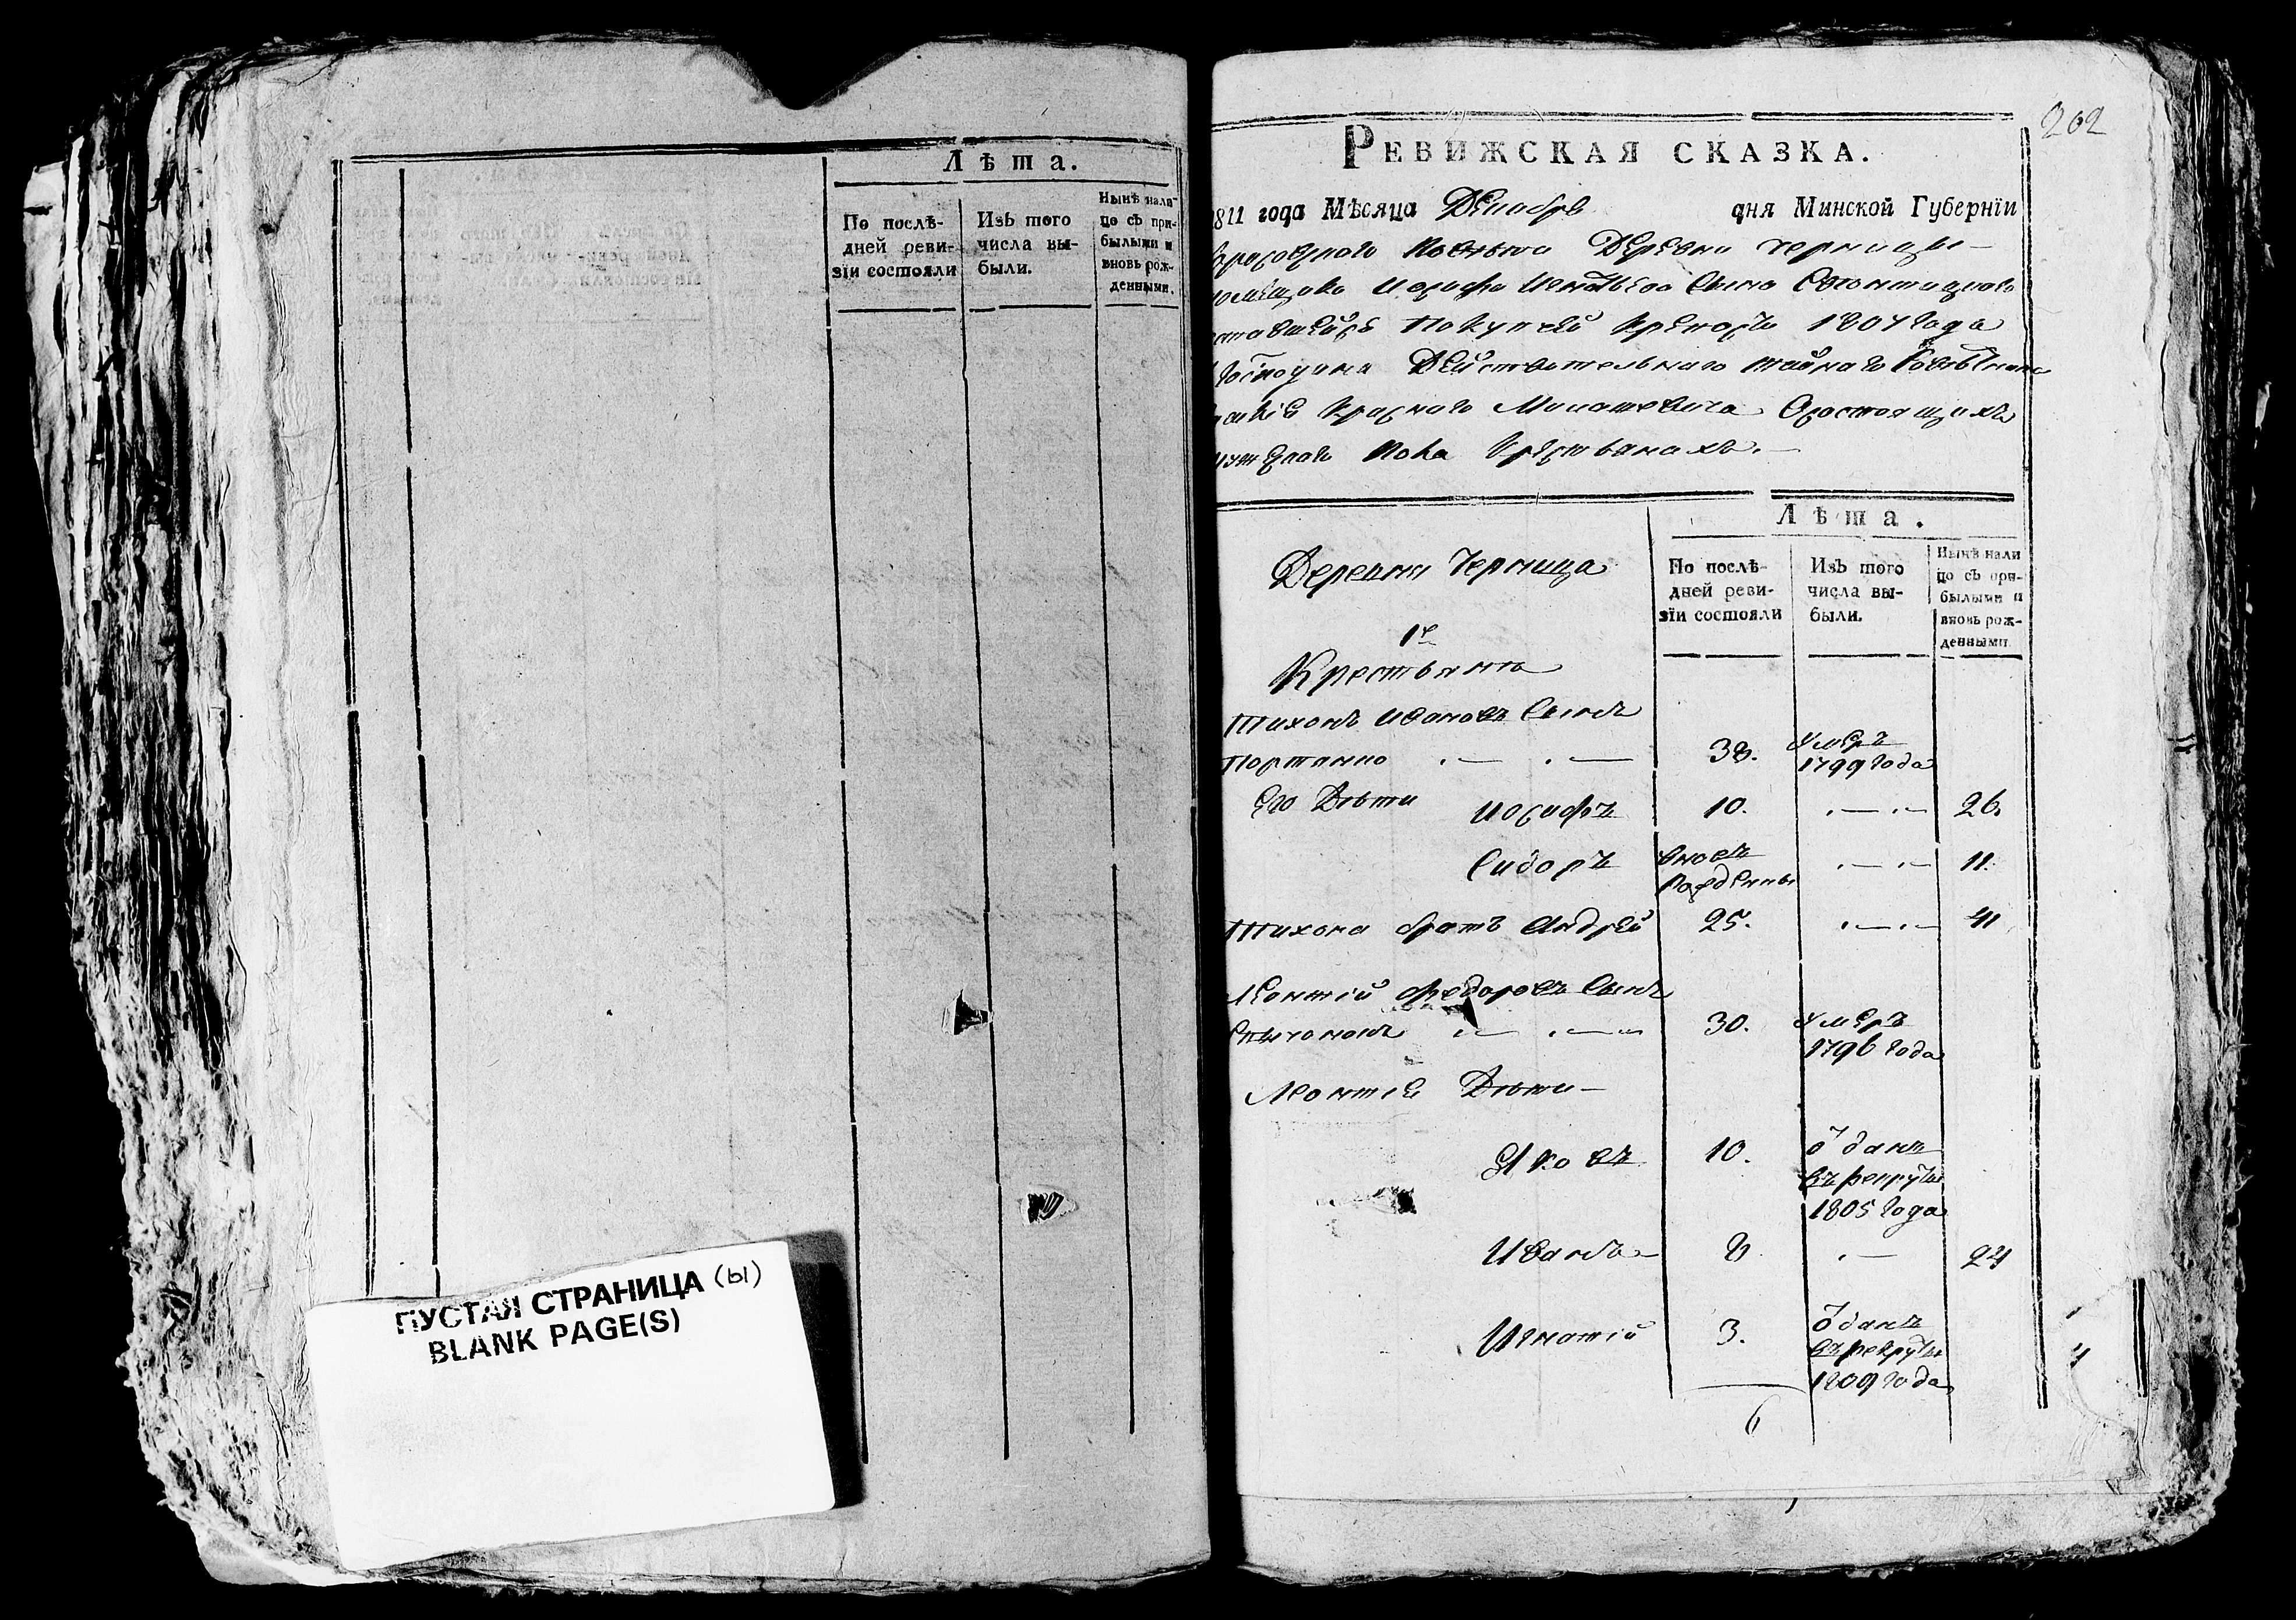 Лѣта.
По послѣ-
дней реви-
зїи состояли
Изъ того
числа вы-
были.
Нынѣ нали-
цо съ при-
былыми и
вновь рож-
денными.
ПУСТАЯ СТРАНИЦА (ы)
BLANK PAGE(S)
202
РЕВИЖСКАЯ СКАЗКА.
1811 года Мѣсяца Декабря дня Минской Губернїи
Повѣта Деревни Черницы
Иосифа Сына
Покупкой 1807 Года
Господина Действительнаго тайнаго Советника
Состоящихъ
Пола Крестьянахъ.
Деревня Черница
Лѣта.
По послѣ-
дней реви-
зїи состояли
Изъ того
числа вы-
были.
Нынѣ нали
цо съ при-
былыми и
вновь рож-
денными
1е
Крестьяне
Тихонъ Ивановъ Сынъ
38. Умеръ
1799 Года
Его Дѣти Иосифъ 10. 26.
Сидоръ вновь 11.
Рожденны
Тихона братъ Андрей 25. 41
Леонтий Федоровъ Сынъ
30. Умеръ
1796 Года
Леонтия Дѣти
Яковъ 10. Отданъ
въ рекруты
1805 Года
Иванъ 8 24
Игнатий 3. Отданъ
въ рекруты
1809 Года
6
4